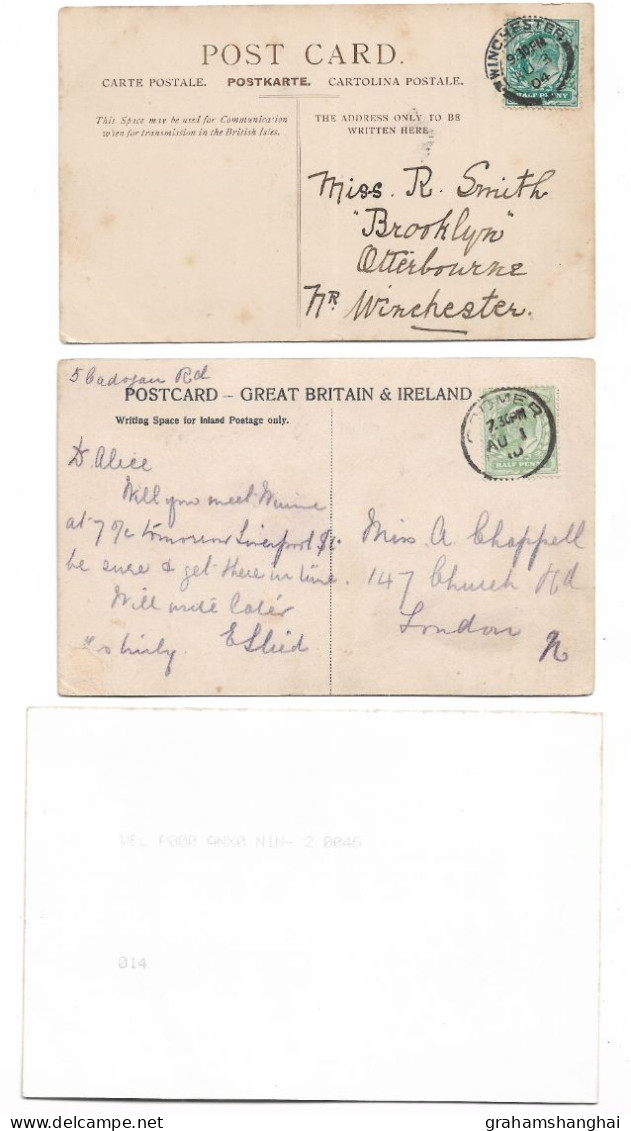 POST CARD.
CARTE POSTALE. POSTKARTE. CARTOLINA POSTALE.
This Space may be used for Communication
when for transmission in the British Isles.
THE ADDRESS ONLY TO BE
WRITTEN HERE
WINCHESTER
9.30PM
04
HALF PENNY
Miss. R. Smith
"Brooklyn"
Otterbourne
Nr Winchester.
5 Cadogan Rd
POSTCARD – GREAT BRITAIN & IRELAND
Writing Space for Inland Postage only.
CROMER
7.30PM
AU 1
10
HALF PENNY
D Alice
Will you meet Winnie
at 7 o/c tomorrow Liverpool St.
be sure & get there in time.
Will write later
Miss A. Chappell
147 Church Rd
London
N
WEL P000 ANX0 NIN- 2 0046
014
grahamshanghai